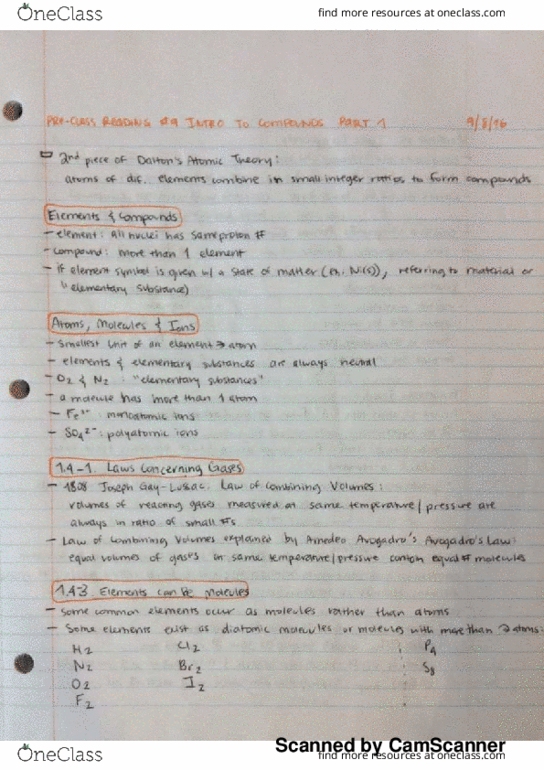 OneClass
find more resources at oneclass.com
PRE-CLASS READING #9 INTRO TO COMPOUNDS PART 1 9/8/16
2nd piece of Dalton's Atomic Theory:
atoms of dif. elements combine in small integer ratios to form compounds
Elements & Compounds
- element: All nuclei has same proton #
- compound: more than 1 element
- if element symbol is given w/ a state of matter (ex. Ni(s)), referring to material or
"elementary substance)
Atoms, Molecules & Ions
- Smallest unit of an element → atom
- elements & elementary substances are always neutral
- O2 & N2: "elementary substances"
- a molecule has more than 1 atom
- : monoatomic ions
- SO4 2-: polyatomic ions
1.4-1. Laws Concerning Gases
- 1808 Joseph Gay-Lussac. Law of Combining Volumes:
volumes of reacting gases measured at same temperature/pressure are
always in ratio of small #s
- Law of Combining Volumes explained by Amedeo Avogadro's Avogadro's Law:
equal volumes of gases in same temperature/pressure contain equal # molecules
1.4-3 Elements can be Molecules
- Some common elements occur as molecules rather than atoms
- Some elements exist as diatomic molecules or molecules with more than 2 atoms:
H2 Cl2 P4
N2 Br2 S8
O2 I2
F2
Scanned by CamScanner
OneClass
find more resources at oneclass.com